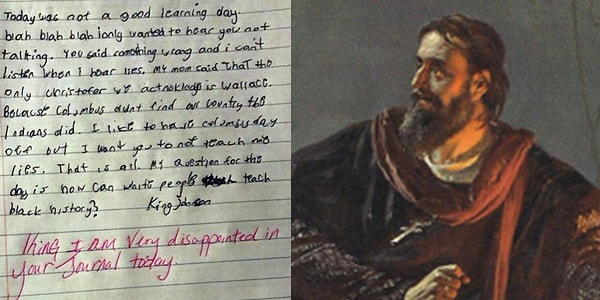 Today was not a good learning day.
blah blah blah I only wanted to hear you not
talking. You said something wrong and i can't
listen when I hear lies. My mom said That the
only christofer we is wallace.
Because Columbus didnt find our country the
Indians did. I like to have columbus day
off but I want you to not teach me
lies. That is all. My question for the
day is how can white people teach
black history? King Johnson
King I am very disappointed in
your Journal today